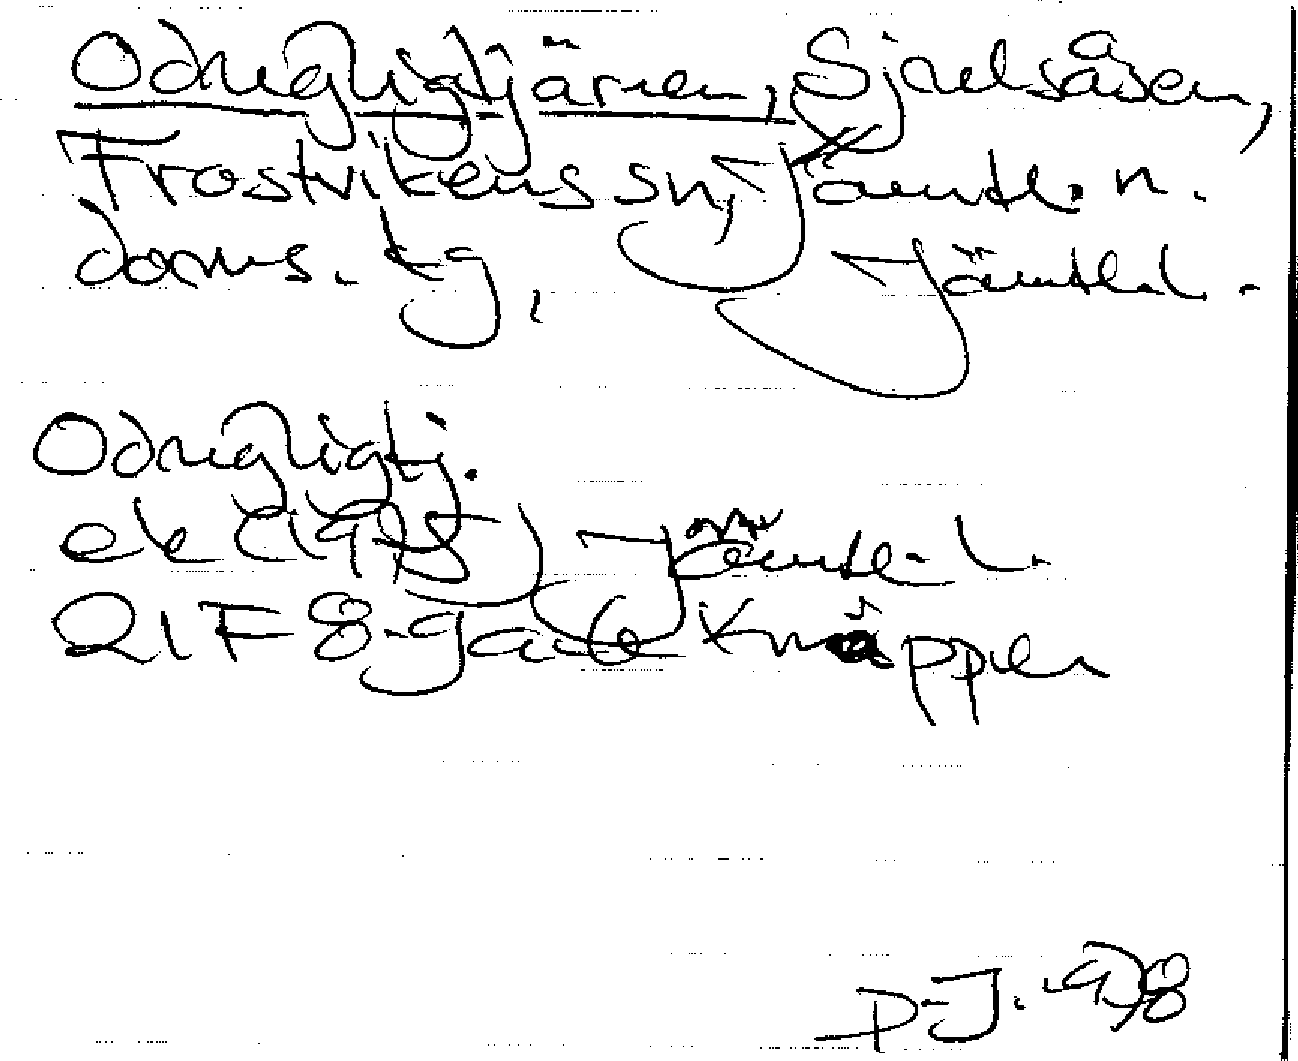 Odrygligtjärnen, Sjoutsåsen,
Frostvikens sn, Jämtl. n.
doms. tg, Jämtl. l.
Odrygligtj.
ek (1975) Jämtl. l.
21F 8-9 a-b Knäppen
P-J. -98